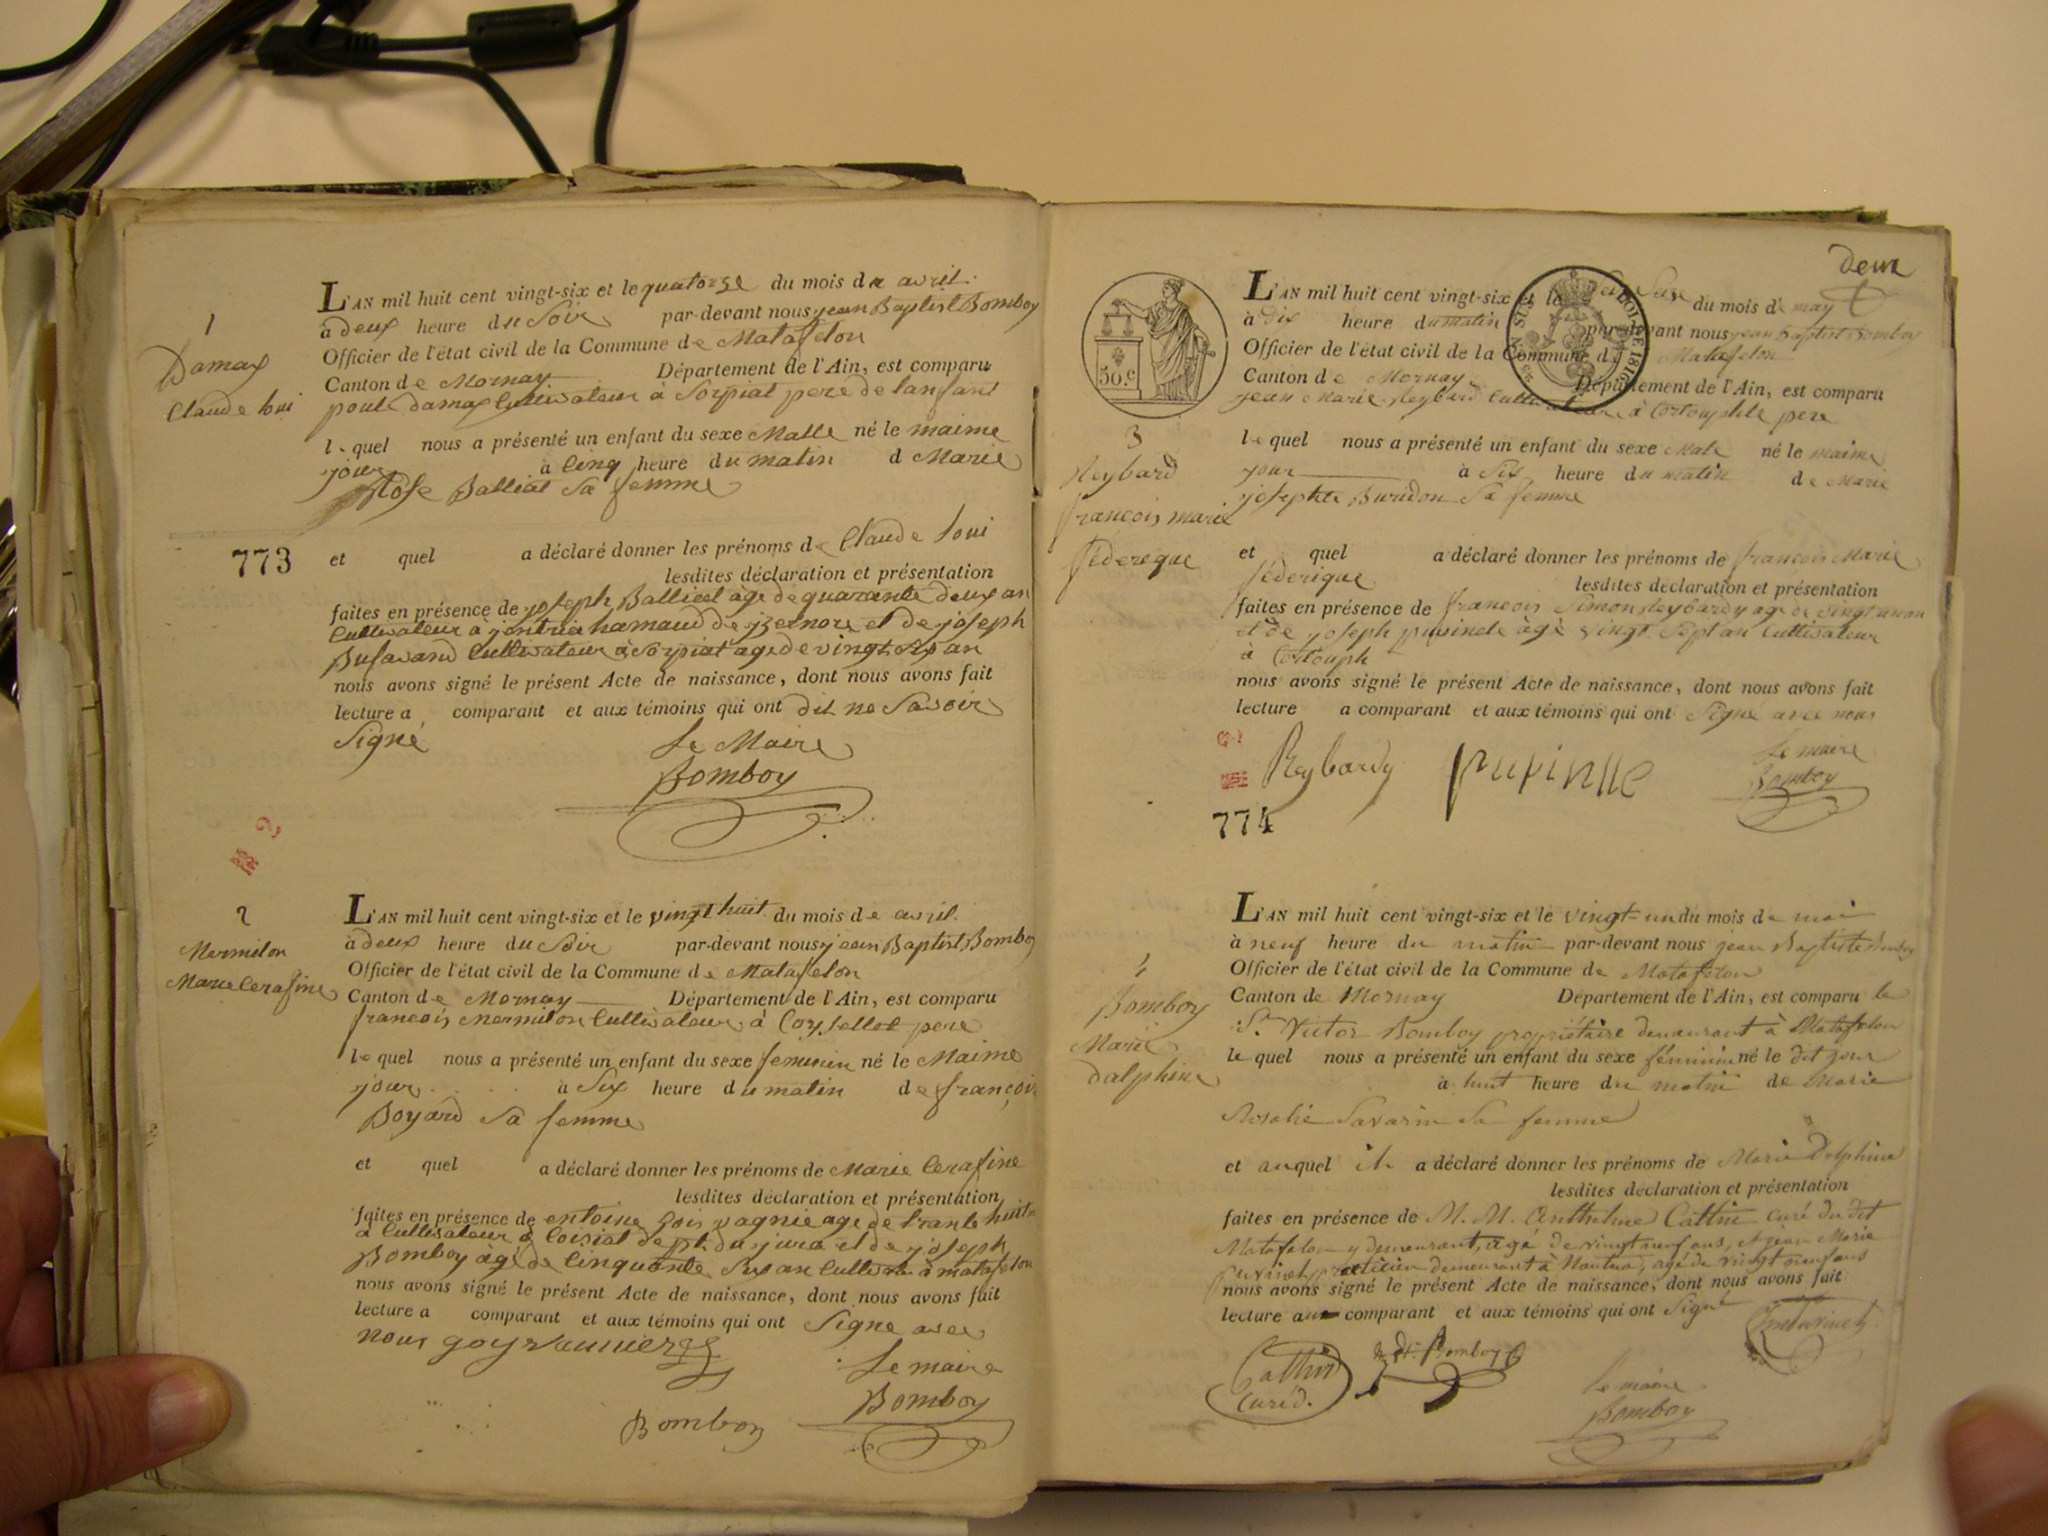 1
Damax
Claude loui
L'AN mil huit cent vingt-six et le quatorze du mois de avril
à deux heure du Soir par-devant nous jean Baptist Bomboy
Officier de l'état civil de la Commune de Matafelon
Canton de Mornay Département de l'Ain, est comparu
damax Cultivateur à Sorpiat pere de lanfant
le quel nous a présenté un enfant du sexe Malle né le maime
jour à Cinq heure du matin d Marie
Rose Balliat Sa femme
773
et quel a déclaré donner les prénoms de Claude loui
lesdites déclaration et présentation
faites en présence de joseph Balliat âgé de quarante deux an
Cultivateur à hamaud de jzernore et de joseph
Cultivateur à Sorpiat âgé de vingt Six an
nous avons signé le présent Acte de naissance, dont nous avons fait
lecture a comparant et aux témoins qui ont dit ne Savoir
Signe
Le Maire
Bomboy
2
Mermilon
Marie Cerafine
L'AN mil huit cent vingt-six et le vingt huit du mois de avril
à deux heure du Soir par-devant nous jean Baptist Bomboy
Officier de l'état civil de la Commune de Matafelon
Canton de Mornay Département de l'Ain, est comparu
francois Mermilon Cultivateur à pere
le quel nous a présenté un enfant du sexe feminin né le Maime
jour à Six heure du matin de françoi
Boyard Sa femme
et quel a déclaré donner les prénoms de Marie Cerafine
lesdites déclaration et présentation
faites en présence de entoine age de trante huit
a Cultivateur à de pt. du jura et de joseph
Bomboy âgé de Cinquante Six an Cultivate à matafelon
nous avons signé le présent Acte de naissance, dont nous avons fait
lecture a comparant et aux témoins qui ont Signe avec
nous
Le maire
Bomboy
Bomboy
deux
50.c
L'AN mil huit cent vingt-six et le du mois d may
à dix heure du matin par-devant nous jean Baptist Bomboy
Officier de l'état civil de la Commune d Matafelon
Canton de Mornay Département de l'Ain, est comparu
jean Marie Reybard Cultivateur à pere
3
Reybard
francois marie
féderique
le quel nous a présenté un enfant du sexe Male né le maime
jour à Six heure du matin de Marie
josephte Buridon Sa femme
et quel a déclaré donner les prénoms de francois Marie
féderique
lesdites déclaration et présentation
faites en présence de francois Simon Reybardy age de vingt un an
et de joseph âgé vingt Sept an Cultivateur
à Cortouph
nous avons signé le présent Acte de naissance, dont nous avons fait
lecture a comparant et aux témoins qui ont Signe avec nous
Reybardy
Le maire
Bomboy
774
4
Bomboy
Marie
dalphine
L'AN mil huit cent vingt-six et le vingt-un du mois de mai
à neuf heure du matin par-devant nous jean Baptiste Bomboy
Officier de l'état civil de la Commune de Matafelon
Canton de Mornay Département de l'Ain, est comparu le
Sr. Victor Bomboy propriétaire demeurant à Matafelon
le quel nous a présenté un enfant du sexe féminin né le dit jour
à huit heure du matin de Marie
Rosalie Savarin Sa femme
et auquel il a déclaré donner les prénoms de Marie Delphine
lesdites déclaration et présentation
faites en présence de M. M. Anthelme Cattin curé du dit
Matafelon y demeurant, agé de vingt neuf ans, et jean Marie
praticien demeurant à Nantua, agé de vingt neuf ans
nous avons signé le présent Acte de naissance, dont nous avons fait
lecture au comparant et aux témoins qui ont Signé
Cattin
Curé d.
Bomboy
Le maire
Bomboy